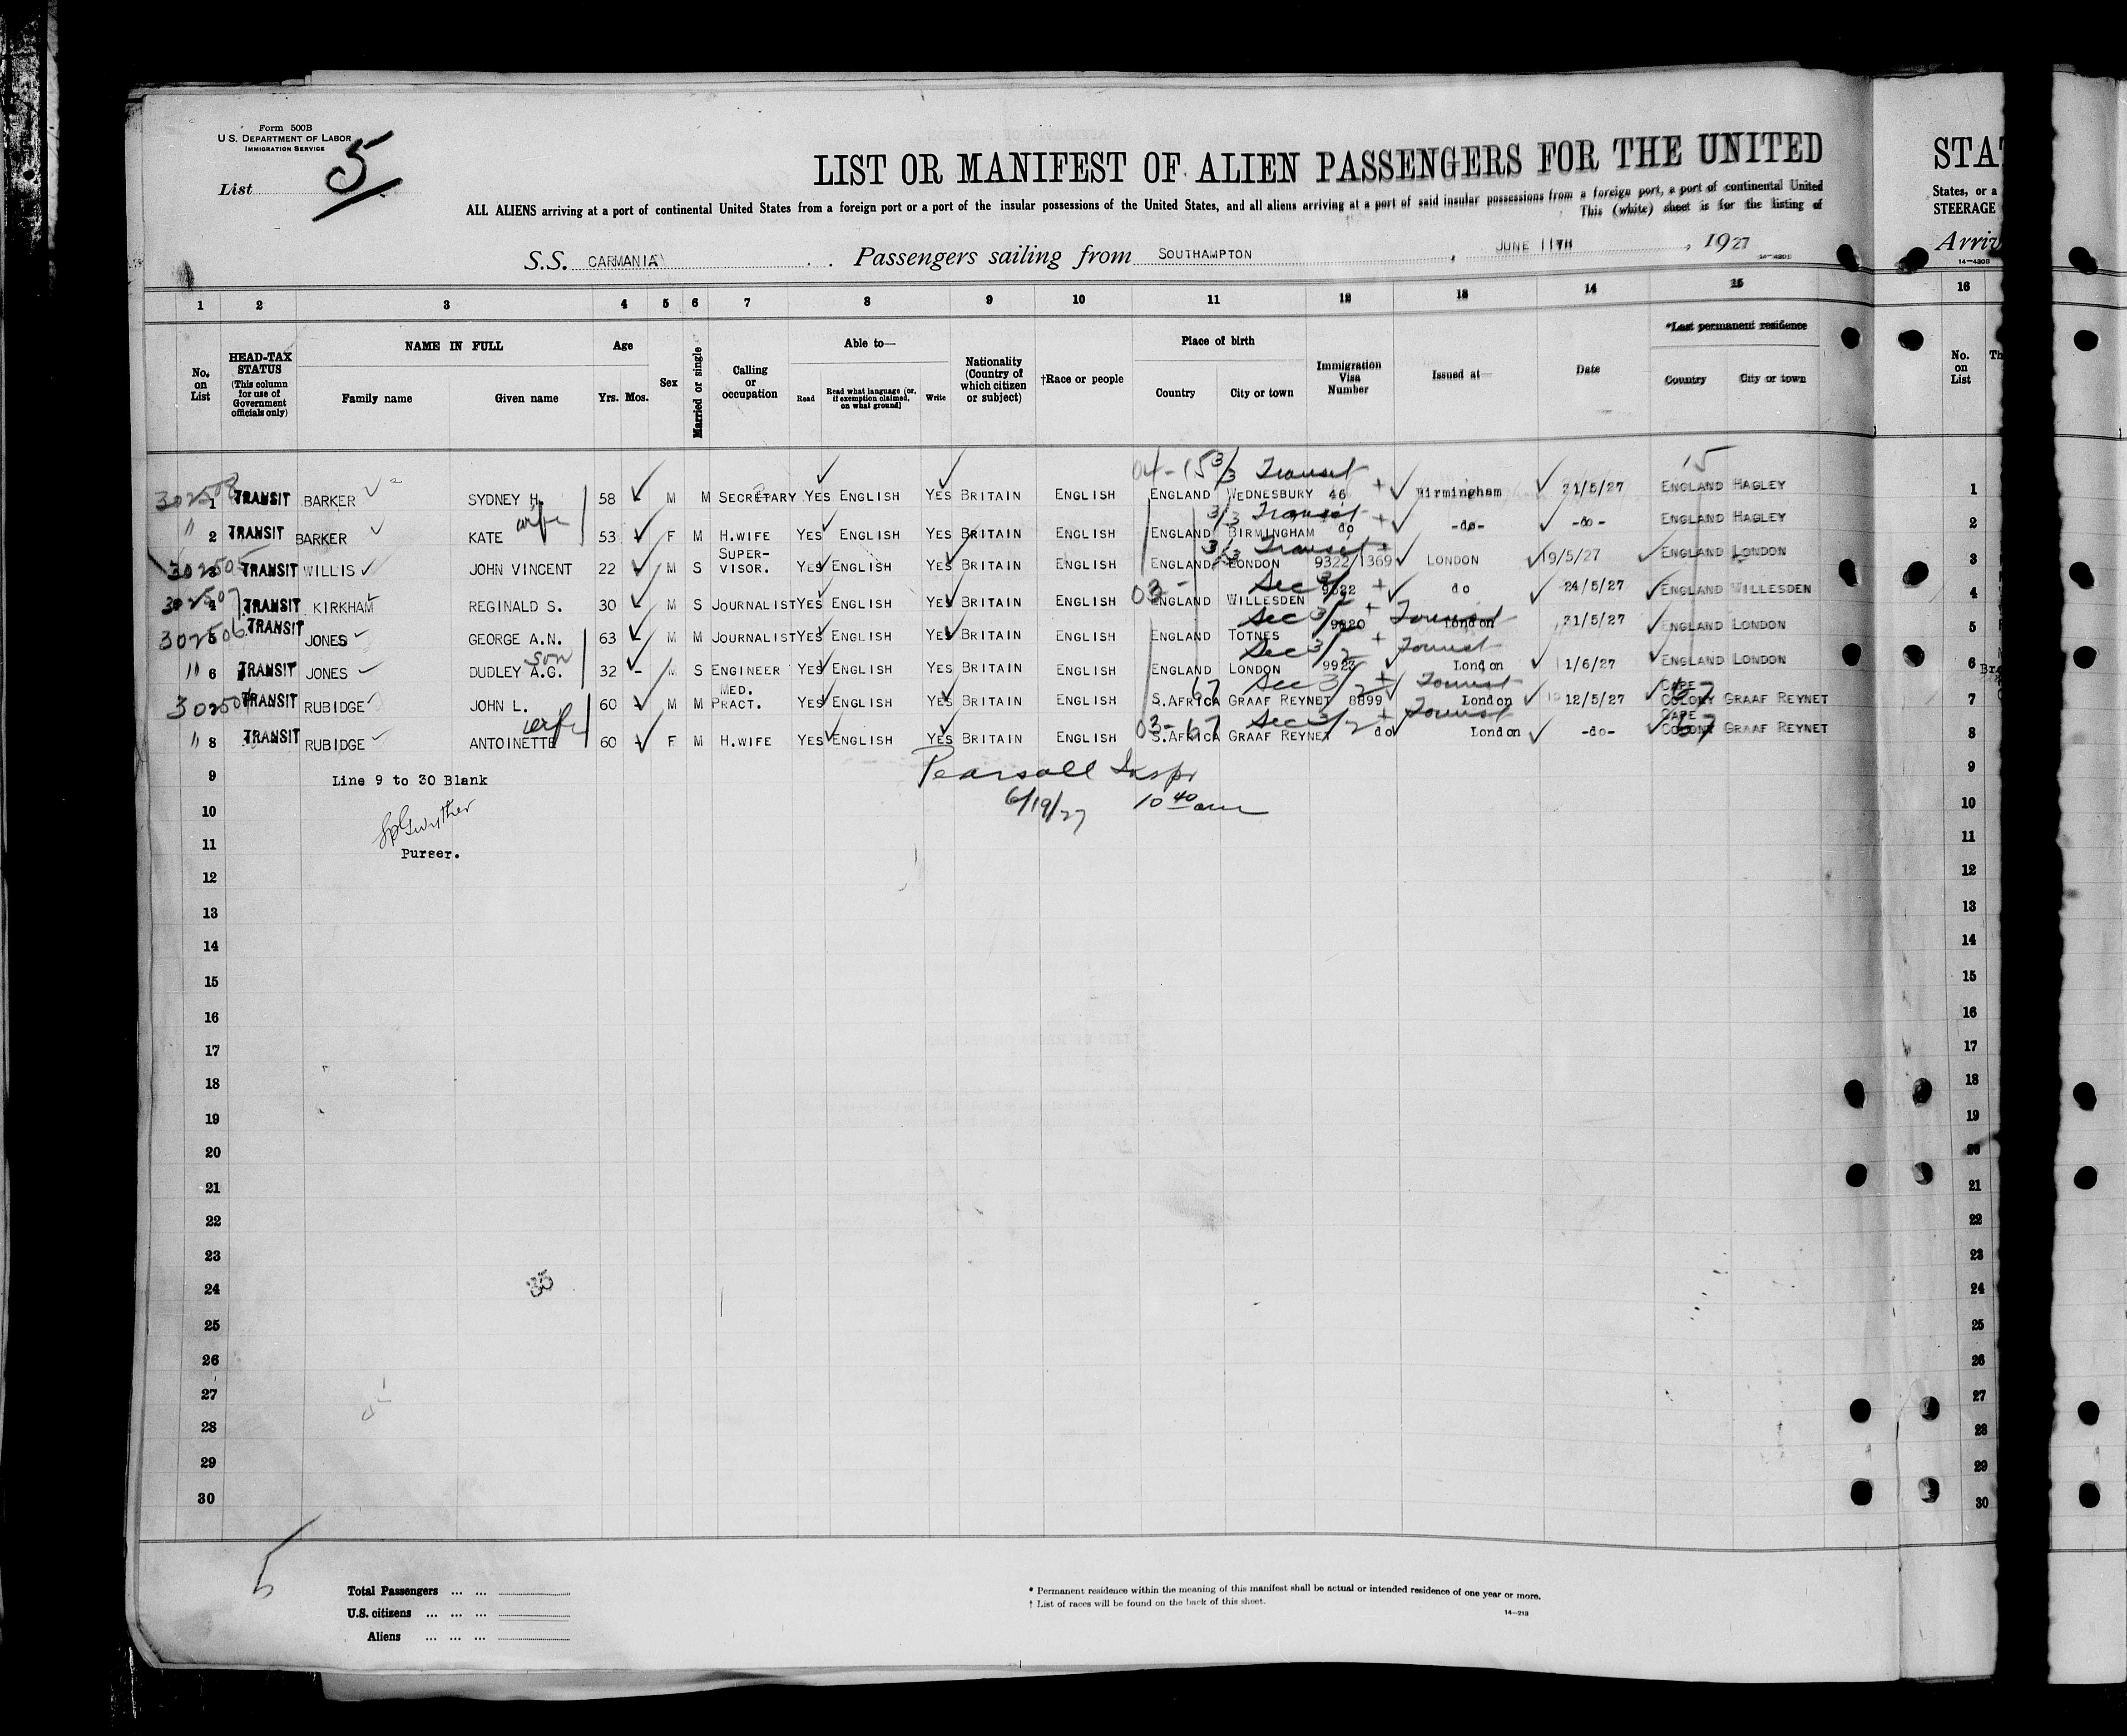 Form 500B
U.S. DEPARTMENT OF LABOR
IMMIGRATION SERVICE
List 5
LIST OR MANIFEST OF ALIEN PASSENGERS FOR THE UNITED
ALL ALIENS arriving at a port of continental United States from a foreign port or a port of the insular possessions of the United States, and all aliens arriving at a port of said insular possessions from a foreign port, a port of continental United
This (white) sheet is for the listing of
S.S. CARMANIA Passengers sailing from SOUTHAMPTON, JUNE 11TH, 1927
14-430B
STA
States, or a
STEERAGE
Arriv
14-430B
1 2 3 4 5 6 7 8 9 10 11 12 13 14 15 16
No. on List
HEAD-TAX STATUS (This column for use of Government officials only)
NAME IN FULL
Family name Given name
Age
Yrs. Mos.
Sex
Married or single
Calling or occupation
Able to—
Read Read what language (or, if exemption claimed, on what ground) Write
Nationality (Country of which citizen or subject)
†Race or people
Place of birth
Country City or town
Immigration Visa Number
Issued at—
Date
*Last permanent residence
Country City or town
No. on List
Th
04-15 3/3 Transit 15
302508 1 TRANSIT BARKER SYDNEY H. 58 M M SECRETARY YES ENGLISH YES BRITAIN ENGLISH ENGLAND WEDNESBURY 46 Birmingham 31/5/27 ENGLAND HAGLEY 1
3/3 Transit
" 2 TRANSIT BARKER KATE wife 53 F M H.WIFE YES ENGLISH YES BRITAIN ENGLISH ENGLAND BIRMINGHAM do -do- -do- ENGLAND HAGLEY 2
3/3 Transit
302505 3 TRANSIT WILLIS JOHN VINCENT 22 M S SUPER-VISOR. YES ENGLISH YES BRITAIN ENGLISH ENGLAND LONDON 9322/1369 LONDON 19/5/27 ENGLAND LONDON 3
03- Sec 3/2
302507 4 TRANSIT KIRKHAM REGINALD S. 30 M S JOURNALIST YES ENGLISH YES BRITAIN ENGLISH ENGLAND WILLESDEN 9622 do 24/5/27 ENGLAND WILLESDEN 4
Sec 3/2 Tourist
302506 5 TRANSIT JONES GEORGE A.N. 63 M M JOURNALIST YES ENGLISH YES BRITAIN ENGLISH ENGLAND TOTNES 9920 London 31/5/27 ENGLAND LONDON 5
Sec 3/2 Tourist
" 6 TRANSIT JONES DUDLEY A.G. son 32 - M S ENGINEER YES ENGLISH YES BRITAIN ENGLISH ENGLAND LONDON 9923 London 1/6/27 ENGLAND LONDON 6
67 Sec 3/2 Tourist 67
302504 7 TRANSIT RUBIDGE JOHN L. 60 M M MED. PRACT. YES ENGLISH YES BRITAIN ENGLISH S.AFRICA GRAAF REYNET 8899 London 12/5/27 CAPE COLONY GRAAF REYNET 7
03-67 Sec 3/2 Tourist 67
" 8 TRANSIT RUBIDGE ANTOINETTE wife 60 F M H.WIFE YES ENGLISH YES BRITAIN ENGLISH S.AFRICA GRAAF REYNET do London -do- CAPE COLONY GRAAF REYNET 8
9 Line 9 to 30 Blank Pearsall Inspr 9
10 6/19/27 10 40 am 10
11 Purser. 11
12 12
13 13
14 14
15 15
16 16
17 17
18 18
19 19
20 20
21 21
22 22
23 23
24 35 24
25 25
26 26
27 27
28 28
29 29
30 30
5
Total Passengers ... ...
U.S. citizens ... ... ...
Aliens ... ... ...
* Permanent residence within the meaning of this manifest shall be actual or intended residence of one year or more.
† List of races will be found on the back of this sheet.
14-213